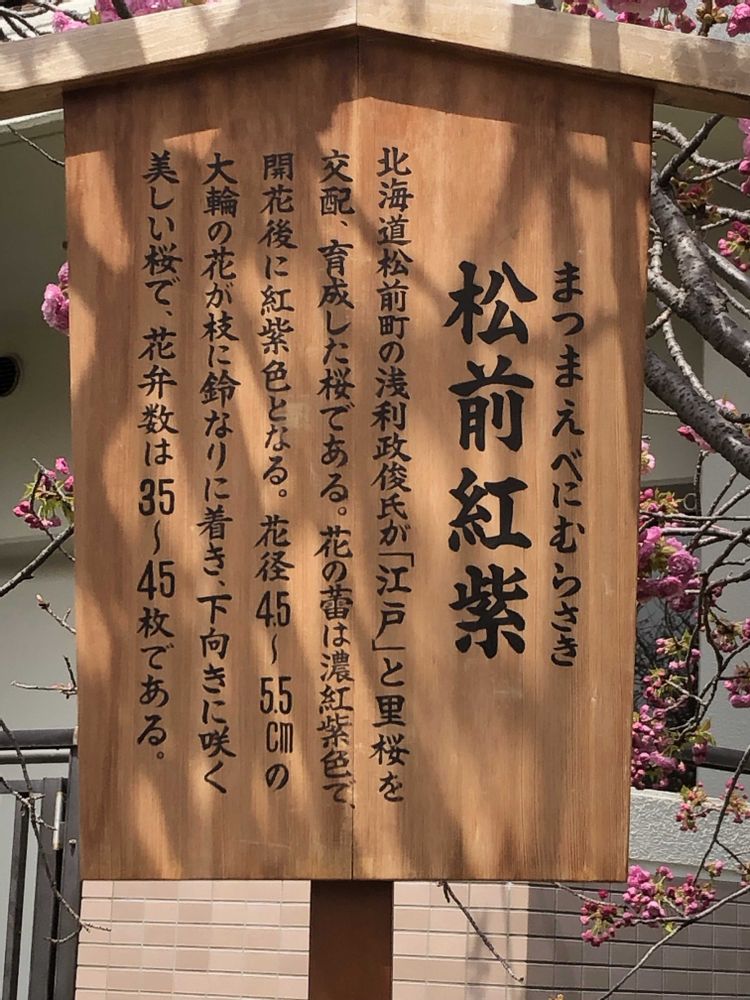 まつまえべにむらさき
松前紅紫
北海道松前町の浅利政俊氏が「江戸」と里桜を
交配、育成した桜である。花の蕾は濃紅紫色で、
開花後に紅紫色となる。花径4.5〜5.5cmの
大輪の花が枝に鈴なりに着き、下向きに咲く
美しい桜で、花弁数は35〜45枚である。